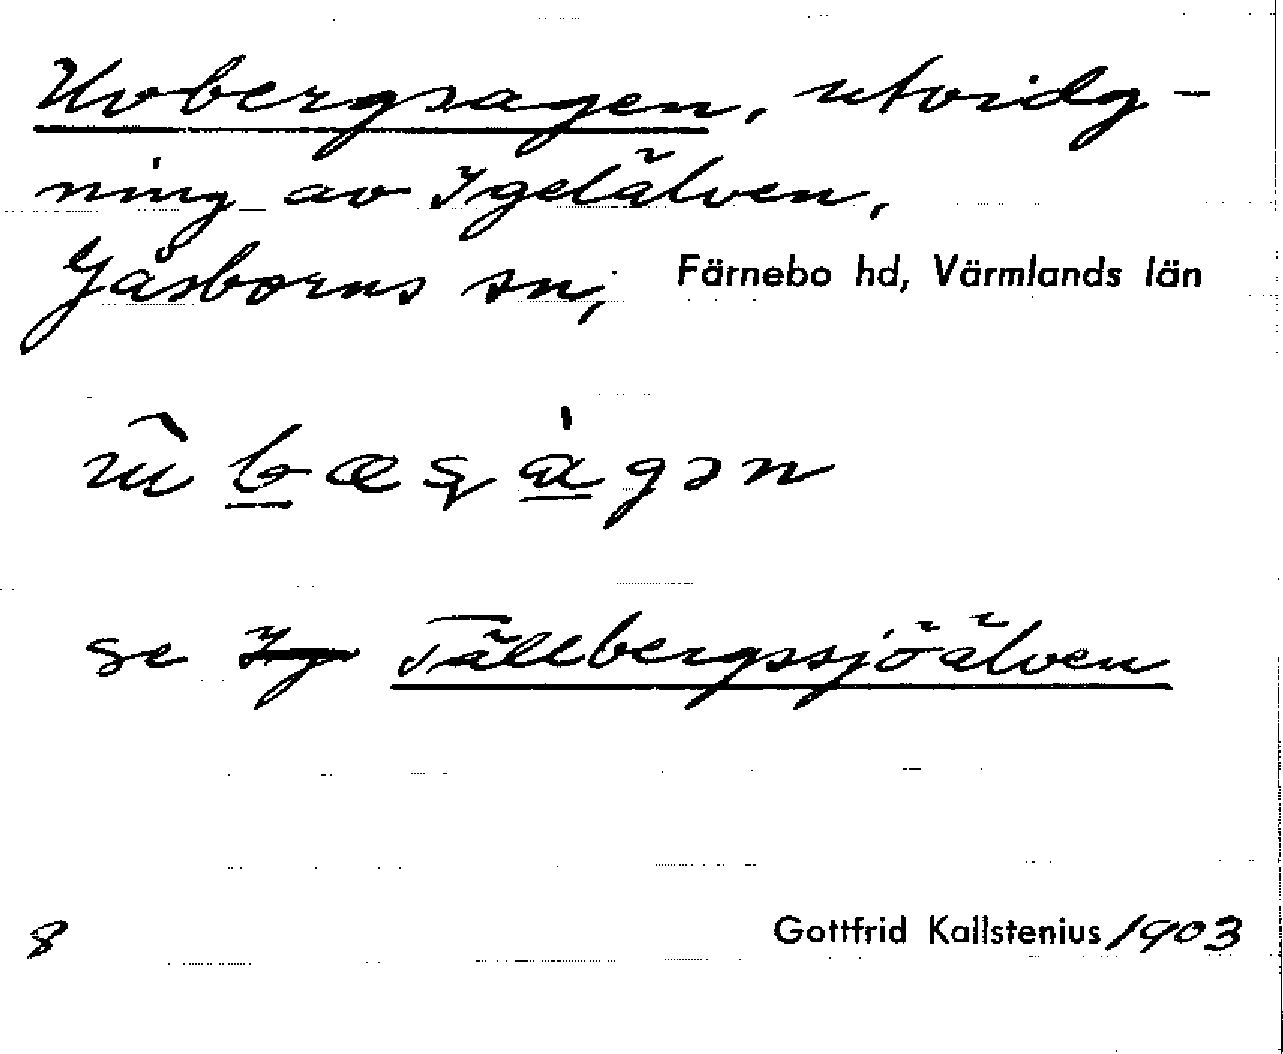 Uvbergsagen, utvidg-
ning av Igelälven,
Gåsborns sn, Färnebo hd, Värmlands län
se Ig Tällbergssjöälven
8 Gottfrid Kallstenius 1903